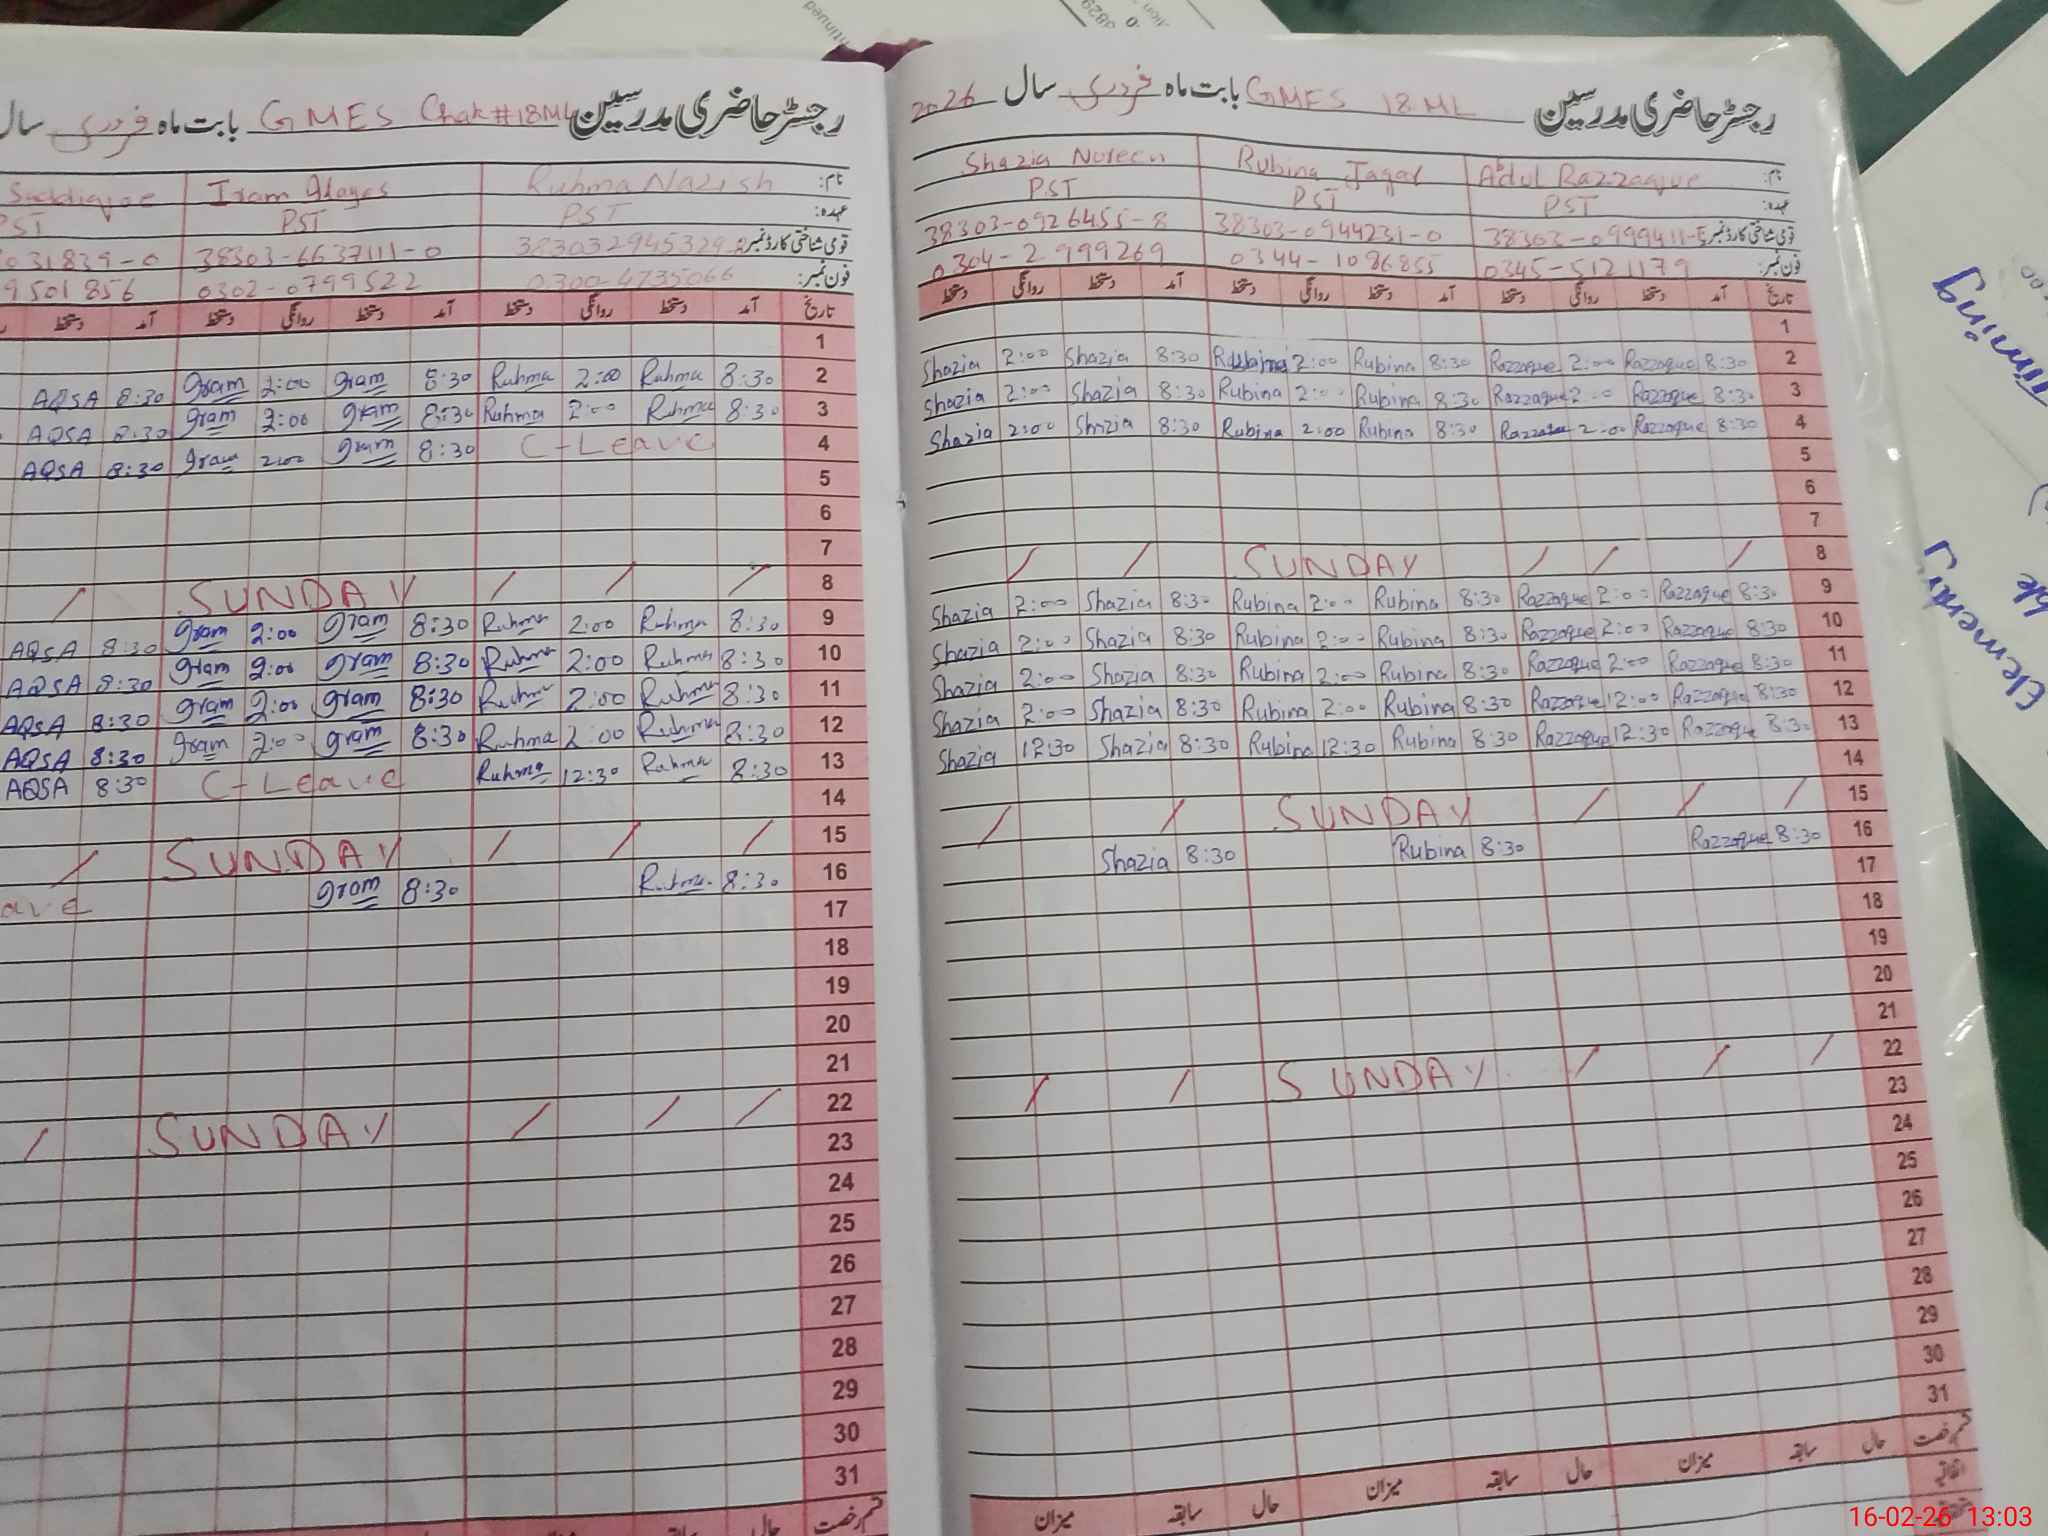 رجسٹر حاضری مدرسین GMES Chak#18ML بابت ماہ فروری سال
نام: Ruhma Nazish Iram Saddique
عہدہ: PST PST PST
قومی شناختی کارڈ نمبر 38303-6637111-0 031839-0
فون نمبر: 0300-4735066 0302-0799522 9501856
تاریخ آمد دستخط روانگی دستخط آمد دستخط روانگی دستخط آمد دستخط
1
2 8:30 Ruhma 2:00 Ruhma 8:30 Iram 2:00 Iram 8:30 AQSA
3 8:30 Ruhma 2:00 Ruhma 8:30 Iram 2:00 Iram 8:30 AQSA
4 C-Leave 8:30 Iram 2:00 Iram 8:30 AQSA
5
6
7
8 / / / SUNDAY /
9 8:30 Ruhma 2:00 Ruhma 8:30 Iram 2:00 Iram 8:30 AQSA
10 8:30 Ruhma 2:00 Ruhma 8:30 Iram 2:00 Iram 8:30 AQSA
11 8:30 Ruhma 2:00 Ruhma 8:30 Iram 2:00 Iram 8:30 AQSA
12 8:30 Ruhma 2:00 Ruhma 8:30 Iram 2:00 Iram 8:30 AQSA
13 8:30 Ruhma 12:30 Ruhma C-Leave 8:30 AQSA
14
15 / / / SUNDAY /
16 8:30 Ruhma 8:30 Iram ave
17
18
19
20
21
22 / / / SUNDAY /
23
24
25
26
27
28
29
30
31
قسم رخصت حال سابقہ میزان
رجسٹر حاضری مدرسین GMES 18 ML بابت ماہ فروری سال 2026
نام: Abdul Razzaque Rubina Shazia Noreen
عہدہ: PST PST PST
قومی شناختی کارڈ نمبر 38303-0999411-5 38303-0944231-0 38303-0926455-8
فون نمبر: 0345-5121179 0344-1086855 0304-2999269
تاریخ آمد دستخط روانگی دستخط آمد دستخط روانگی دستخط آمد دستخط روانگی دستخط
1
2 8:30 Razzaque 2:00 Razzaque 8:30 Rubina 2:00 Rubina 8:30 Shazia 2:00 Shazia
3 8:30 Razzaque 2:00 Razzaque 8:30 Rubina 2:00 Rubina 8:30 Shazia 2:00 Shazia
4 8:30 Razzaque 2:00 Razzaque 8:30 Rubina 2:00 Rubina 8:30 Shazia 2:00 Shazia
5
6
7
8 / / / SUNDAY / /
9 8:30 Razzaque 2:00 Razzaque 8:30 Rubina 2:00 Rubina 8:30 Shazia 2:00 Shazia
10 8:30 Razzaque 2:00 Razzaque 8:30 Rubina 2:00 Rubina 8:30 Shazia 2:00 Shazia
11 8:30 Razzaque 2:00 Razzaque 8:30 Rubina 2:00 Rubina 8:30 Shazia 2:00 Shazia
12 8:30 Razzaque 12:00 Razzaque 8:30 Rubina 2:00 Rubina 8:30 Shazia 2:00 Shazia
13 8:30 Razzaque 12:30 Razzaque 8:30 Rubina 12:30 Rubina 8:30 Shazia 12:30 Shazia
14
15 / / / SUNDAY / /
16 8:30 Razzaque 8:30 Rubina 8:30 Shazia
17
18
19
20
21
22 / / / SUNDAY / /
23
24
25
26
27
28
29
30
31
قسم رخصت حال سابقہ میزان حال سابقہ میزان حال سابقہ میزان
اتفاقیہ
Timing
Elementary
16-02-26 13:03